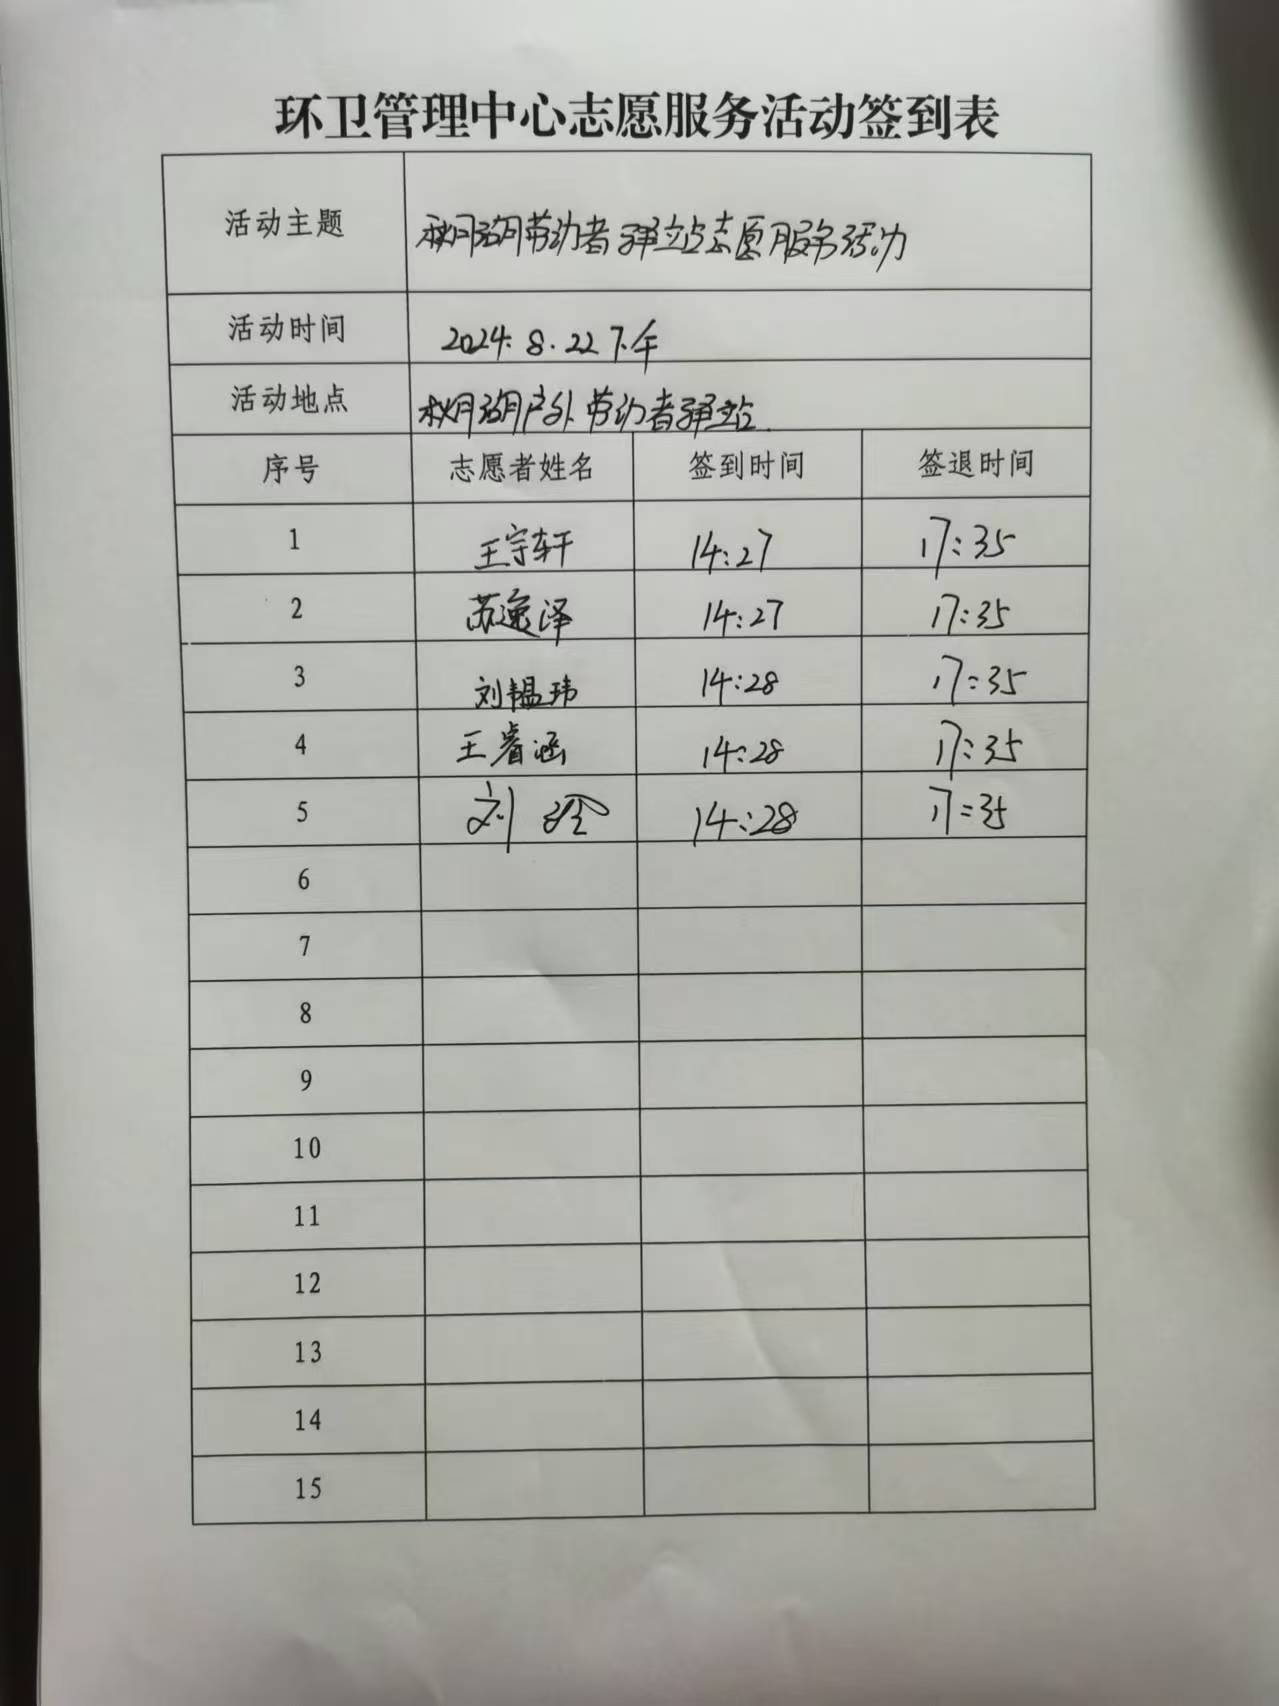 环卫管理中心志愿服务活动签到表
活动主题 秋月湖劳动者驿站志愿服务活动
活动时间 2024.8.22下午
活动地点 秋月湖户外劳动者驿站
序号 志愿者姓名 签到时间 签退时间
1 王宇轩 14:27 17:35
2 苏逸泽 14:27 17:35
3 刘韫玮 14:28 17:35
4 王睿涵 14:28 17:35
5 刘 14:28 17:35
6
7
8
9
10
11
12
13
14
15